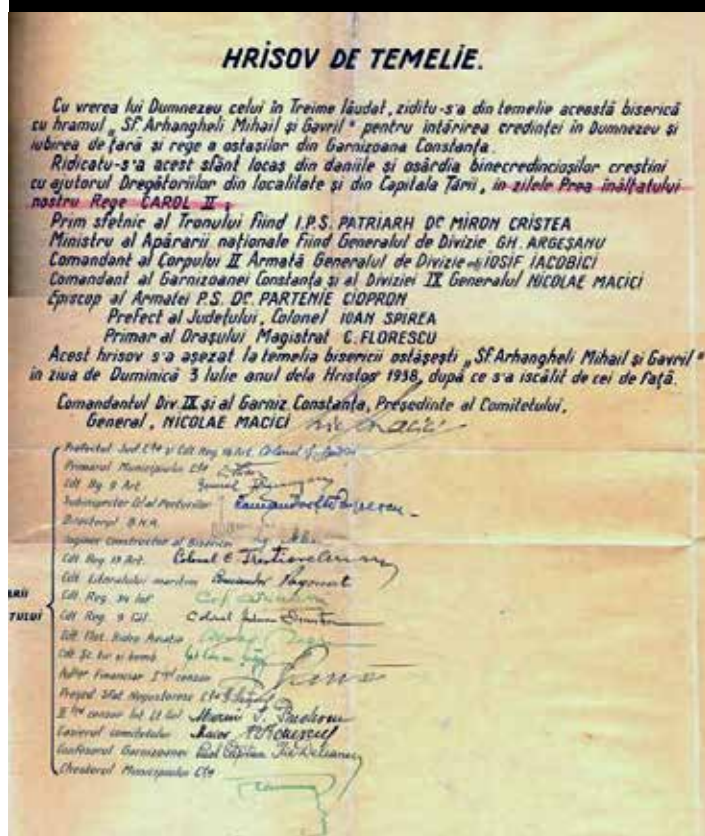 HRISOV DE TEMELIE.
Cu vrerea lui Dumnezeu celui în Treime lăudat, ziditu-s'a din temelie această biserică
cu hramul „Sf. Arhangheli Mihail și Gavril" pentru întărirea credinței în Dumnezeu și
iubirea de țară și rege a ostașilor din Garnizoana Constanța.
Ridicatu-s'a acest sfânt locaș din daniile și osârdia binecredincioșilor creștini
cu ajutorul Dregătoriilor din localitate și din Capitala Țării, în zilele Prea înălțatului
nostru Rege CAROL II;
Prim sfetnic al Tronului fiind I.P.S. PATRIARH DC MIRON CRISTEA
Ministru al Apărarii naționale Fiind Generalul de Divizie GH. ARGEȘANU
Comandant al Corpului II Armată Generalul de Divizie adj IOSIF IACOBICI
Comandant al Garnizoanei Constanța și al Diviziei IX Generalul NICOLAE MACICI
Episcop al Armatei P.S. DC. PARTENIE CIOPRON
Prefect al Județului, Colonel IOAN SPIREA
Primar al Orașului Magistrat C. FLORESCU
Acest hrisov s'a așezat la temelia bisericii ostășești „Sf. Arhangheli Mihail și Gavril"
în ziua de Duminică 3 Iulie anul dela Hristos 1938, după ce s'a iscălit de cei de față.
Comandantul Div. IX și al Garniz. Constanța, Președinte al Comitetului,
General, NICOLAE MACICI
Prefectul Jud. Cța și Cdt Reg. Art. Colonel
Primarul Municipiului Cța
Cdt Bg 9 Art. General
Subinspector Gl al Porturilor Comandor Popescu
Directorul B.N.R.
Inginer Constructor al Bisericii
Cdt Reg 19 Art. Colonel
Cdt Litoralului maritim Comandor
Cdt. Reg. 34 Inf
Cdt Reg. 9 Căl. Colonel
Cdt Flot. Hidro Aviație
Cdt Șc.
Financiar I censor
Președ. Sfat Negustoresc Cța
II censor
Casierul Comitetului Maior
Confesorul Garnizoanei Căpitan
Chestorul Municipiului Cța